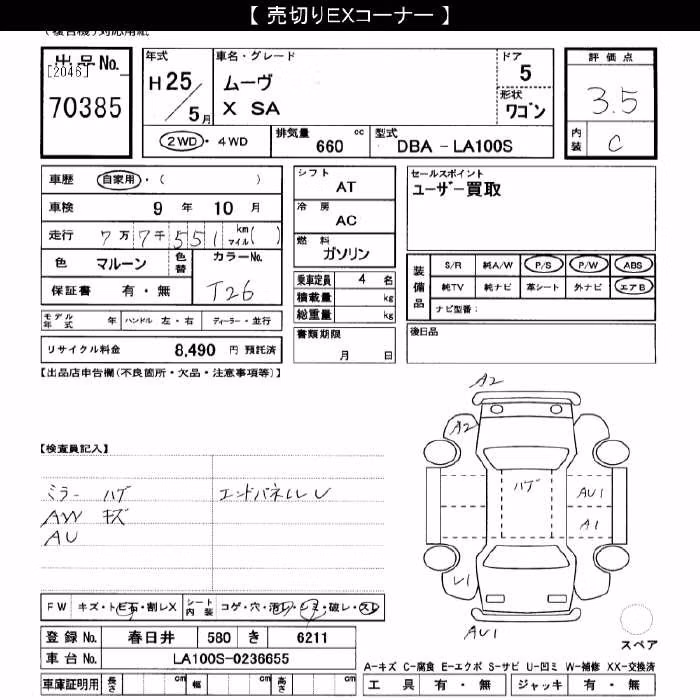 【 売切りEXコーナー 】
出品No.
[2046]
70385
年式
H25/5月
車名・グレード
ムーヴ
X SA
ドア
5
形状
ワゴン
2WD・4WD
排気量 660 cc
型式 DBA - LA100S
評価点
3.5
内装 C
車歴 自家用・( )
車検 9 年 10 月
走行 7万7千551 km マイル( )
色 マルーン 色替
カラーNo. T26
保証書 有・無
モデル年式 年 ハンドル 左・右 ディーラー・並行
リサイクル料金 8,490 円 預託済
シフト
AT
冷房
AC
燃料
ガソリン
乗車定員 4 名
積載量 kg
総重量 kg
書類期限
月 日
セールスポイント
ユーザー買取
装備品
S/R 純A/W P/S P/W ABS
純TV 純ナビ 革シート 外ナビ エアB
ナビ型番:
後日品
【出品店申告欄(不良箇所・欠品・注意事項等)】
【検査員記入】
ミラー ハゲ
AW キズ
AU
エンドパネルU
A2
A2
ハゲ
AU1
A1
L1
AU1
スペア
FW キズ・トビ石・割レX
シート内装 コゲ・穴・汚レ・シミ・破レ・スレ
登録No. 春日井 580 き 6211
車台No. LA100S-0236655
車庫証明用 長さ cm 幅 cm 高さ cm
A-キズ C-腐食 E-エクボ S-サビ U-凹ミ W-補修 XX-交換済
工具 有・無 ジャッキ 有・無